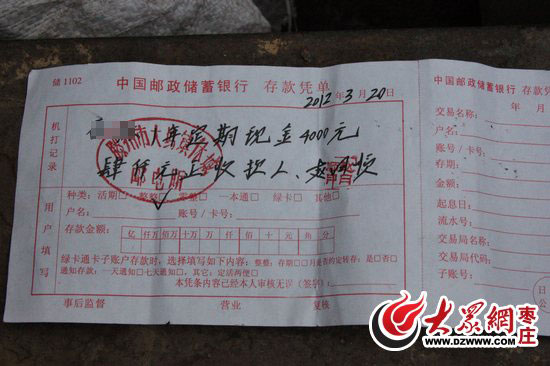 储1102
中国邮政储蓄银行 存款凭单
2012年3月20日
机打记录
年定期现金4000元
肆仟元 收款人、
邮电所
用户填写
种类：活期□ 整整 零整□ 一本通□ 绿卡□ 其他□
户名： 账号/卡号：
存款金额：
亿 仟万 佰万 十万 万 仟 佰 十 元 角 分
绿卡通卡子账户存款时，选择填写如下内容：整整：存期□□月是否约定转存：是□否□
通知存款：一天通知□七天通知□，其它：定活两便□
本凭条内容已经本人审核无误（签字）：
事后监督 营业 复核
年 月
交易名称：
户名：
账号：
存期：
金额：
起息日：
流水号：
交易局名称：
交易局代码：
子账号：
大众网 枣庄
WWW.DZWWW.COM